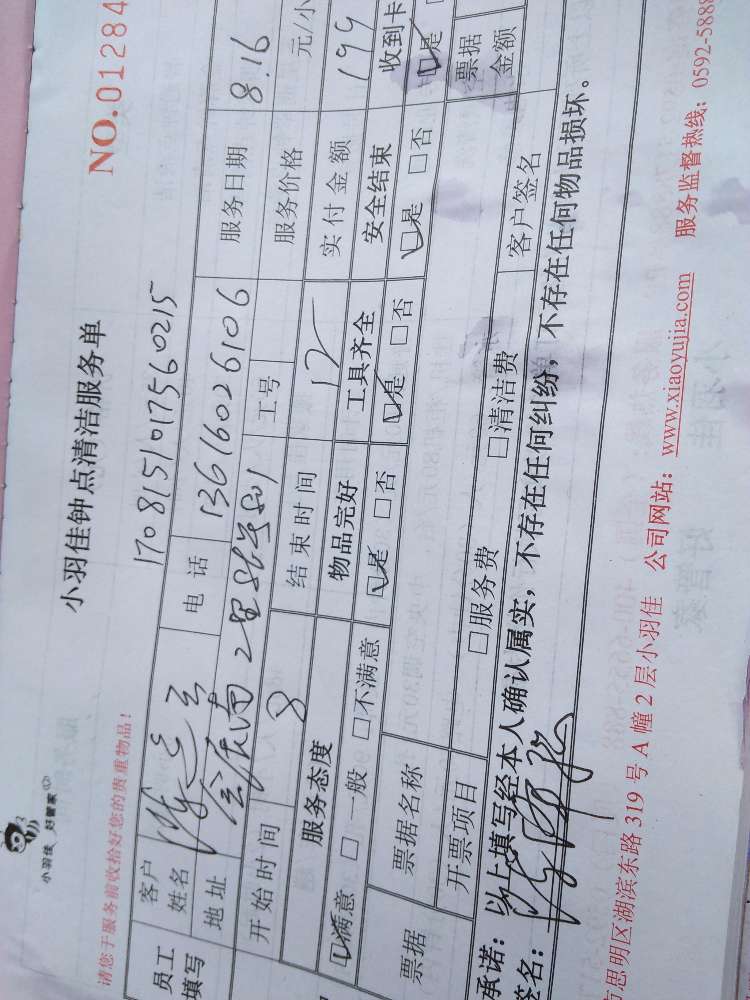 小羽佳 好管家
小羽佳钟点清洁服务单
NO.01284
请您于服务前收拾好您的贵重物品!
1708151017560215
员工填写
客户姓名
电话 13616026106
服务日期 8.16
地址
工号
服务价格 元/小
开始时间 8
结束时间 12
实付金额 199
服务态度 物品完好 工具齐全 安全结束 收到卡
☑满意 □一般 □不满意 ☑是 □否 ☑是 □否 ☑是 □否 ☑是
票据 票据名称 票据金额
开票项目 □服务费 □清洁费 客户签名
承诺:以上填写经本人确认属实,不存在任何纠纷,不存在任何物品损坏。
签名:
市思明区湖滨东路 319 号 A 幢 2 层小羽佳 公司网站:www.xiaoyujia.com 服务监督热线:0592-5888